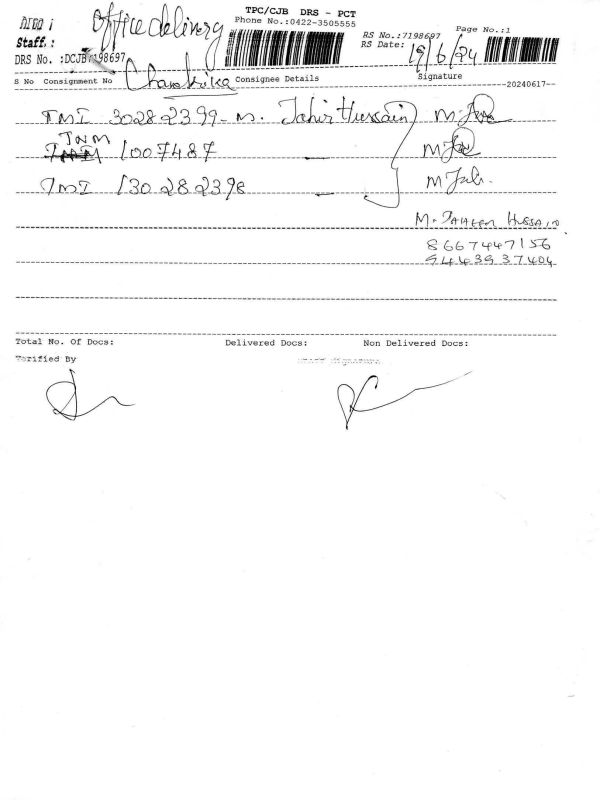 TPC/CJB DRS - PCT
Office delivery
Phone No.:0422-3505555
Page No.:1
RS No.:7198697
Staff.:
RS Date: 19/6/24
DRS No. :DCJB7198697
Chandrika
S No Consignment No Consignee Details Signature
20240617
TMI 302822399 - M. Tahir Hussain
JNM
1007487 -
TMI 130282398 -
M. TAHEER HUSSAIN
8667447156
9443937404
Total No. Of Docs: Delivered Docs: Non Delivered Docs:
Verified By